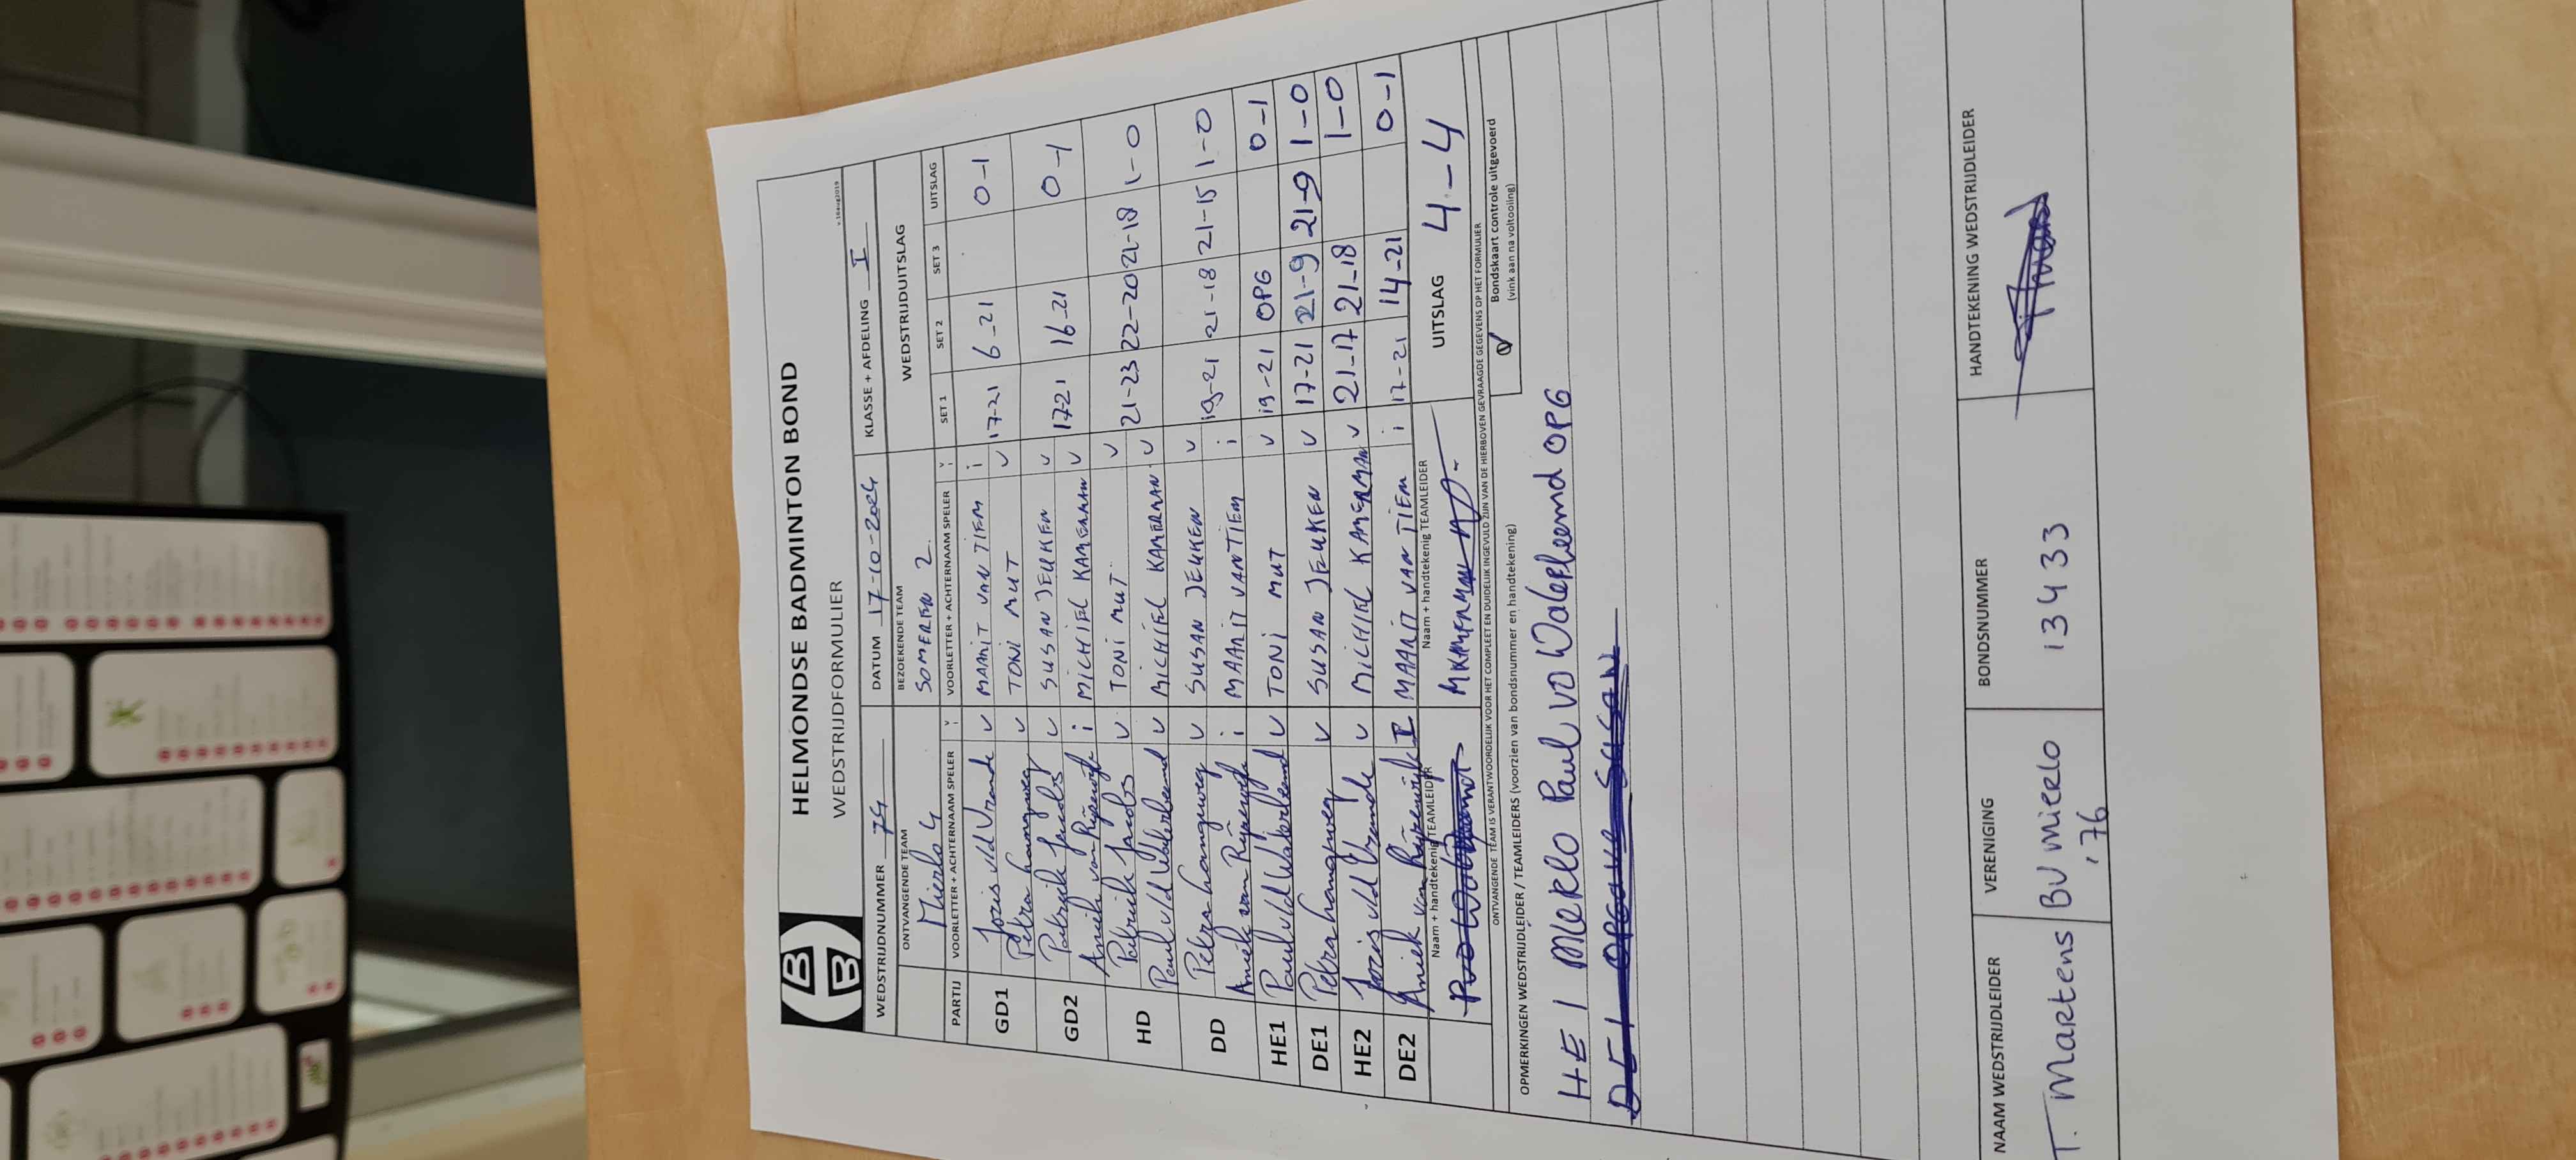 HELMONDSE BADMINTON BOND
WEDSTRIJDFORMULIER
WEDSTRIJDNUMMER 74 DATUM 17-10-2024 KLASSE + AFDELING I
ONTVANGENDE TEAM BEZOEKENDE TEAM WEDSTRIJDUITSLAG
Mierlo 4 SOMEREN 2
PARTIJ VOORLETTER + ACHTERNAAM SPELER V I VOORLETTER + ACHTERNAAM SPELER V I SET 1 SET 2 SET 3 UITSLAG
GD1 Joris v/d Vrande v MAARIT VAN TIEM i 17-21 6-21 0-1
Petra hoangweg v TONI MUT v
GD2 Patrick Jacobs v SUSAN JEUKEN v 17-21 16-21 0-1
Aniek van Rijsewijk i MICHIEL KAMERMAN v
HD Patrick Jacobs v TONI MUT v 21-23 22-20 21-18 1-0
Paul v/d Waterbeemd v MICHIEL KAMERMAN v
DD Petra hoangweg v SUSAN JEUKEN v 19-21 21-18 21-15 1-0
Aniek van Rijsewijk i MAARIT VAN TIEM i
HE1 Paul v/d Waterbeemd v TONI MUT v 19-21 OPG 0-1
DE1 Petra hoangweg v SUSAN JEUKEN v 17-21 21-9 21-9 1-0
HE2 Joris v/d Vrande v MICHIEL KAMERMAN v 21-17 21-18 1-0
DE2 Aniek van Rijsewijk I MAARIT VAN TIEM i 17-21 14-21 0-1
Naam + handtekenig TEAMLEIDER Naam + handtekenig TEAMLEIDER
M KAMERMAN UITSLAG 4-4
ONTVANGENDE TEAM IS VERANTWOORDELIJK VOOR HET COMPLEET EN DUIDELIJK INGEVULD ZIJN VAN DE HIERBOVEN GEVRAAGDE GEGEVENS OP HET FORMULIER
OPMERKINGEN WEDSTRIJDLEIDER / TEAMLEIDERS (voorzien van bondsnummer en handtekening)
Bondskaart controle uitgevoerd
(vink aan na voltooiing)
HE 1 MERLO Paul vd Waterbeemd OPG
DE 1 OPGAVE SUSAN
NAAM WEDSTRIJDLEIDER VERENIGING BONDSNUMMER HANDTEKENING WEDSTRIJDLEIDER
T. Martens BV Mierlo '76 13433